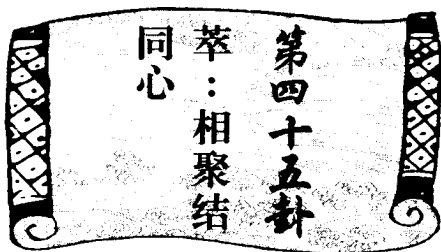 第四十五卦
萃：相聚结
同心